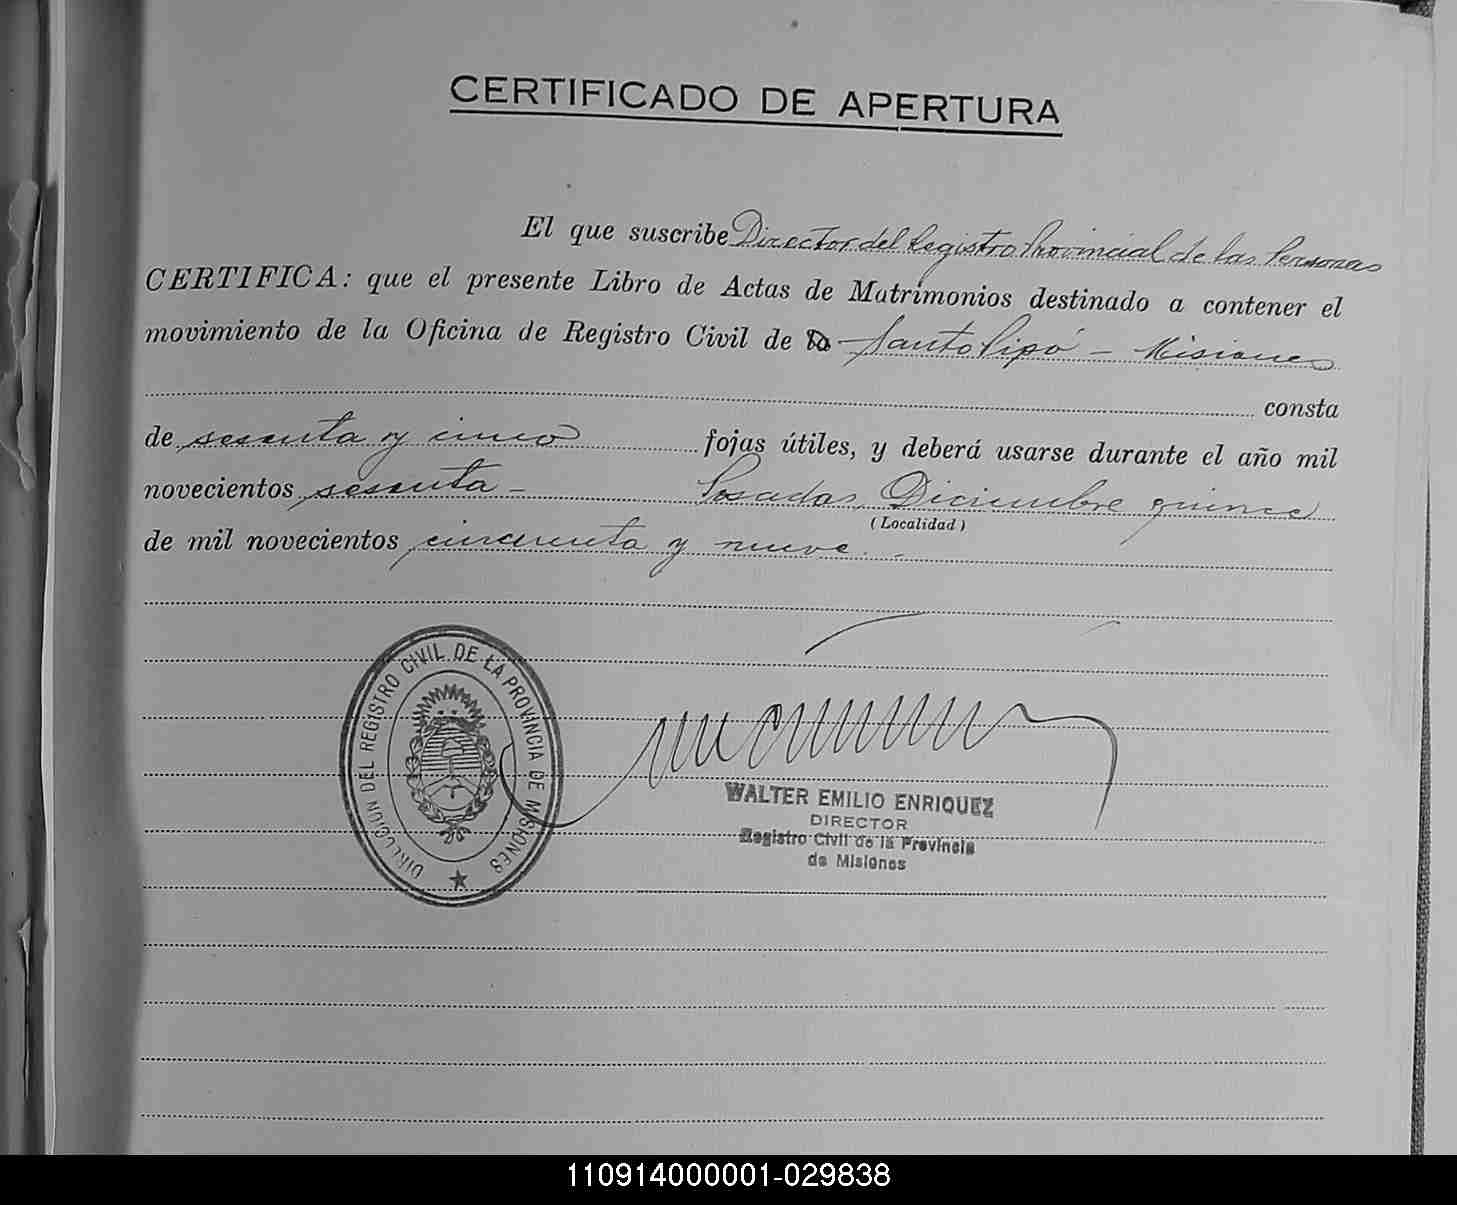 CERTIFICADO DE APERTURA
El que suscribe Director del Registro Provincial de las Personas
CERTIFICA: que el presente Libro de Actas de Matrimonios destinado a contener el
movimiento de la Oficina de Registro Civil de Santo Pipó - Misiones
consta
de sesenta y cinco fojas útiles, y deberá usarse durante el año mil
novecientos sesenta - Posadas, Diciembre quince
(Localidad)
de mil novecientos cincuenta y nueve.
DIRECCION DEL REGISTRO CIVIL DE LA PROVINCIA DE MISIONES
WALTER EMILIO ENRIQUEZ
DIRECTOR
Registro Civil de la Provincia
de Misiones
110914000001-029838